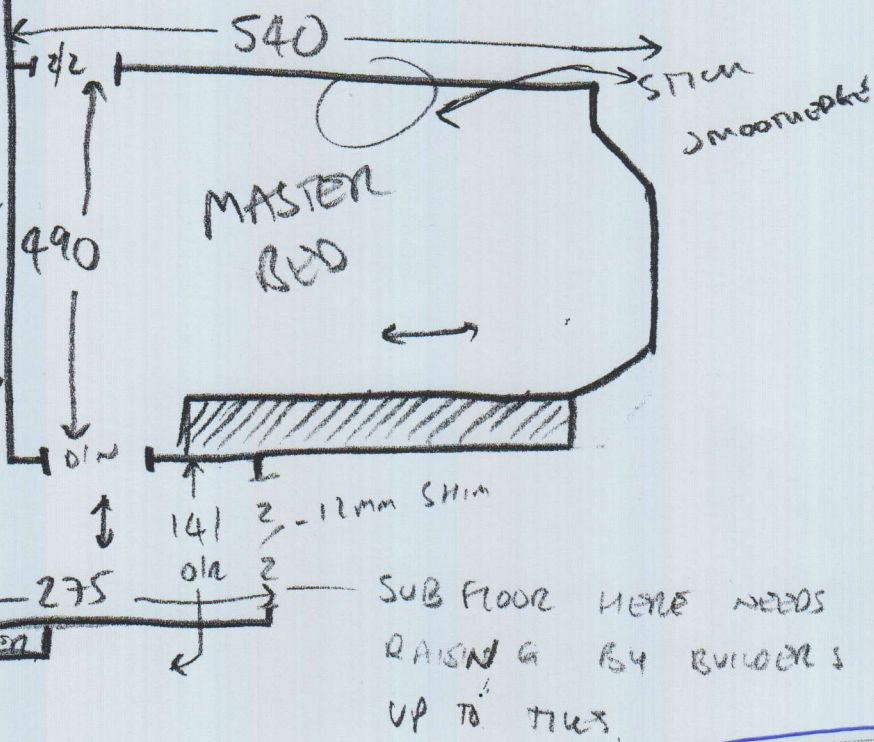 540
2/2
STICK
SMOOTHEDGE
MASTER
BED
490
D/N
141
O/R
2
2
12mm SHIM
275
SUB FLOOR HERE NEEDS
RAISING BY BUILDERS
UP TO TILES.